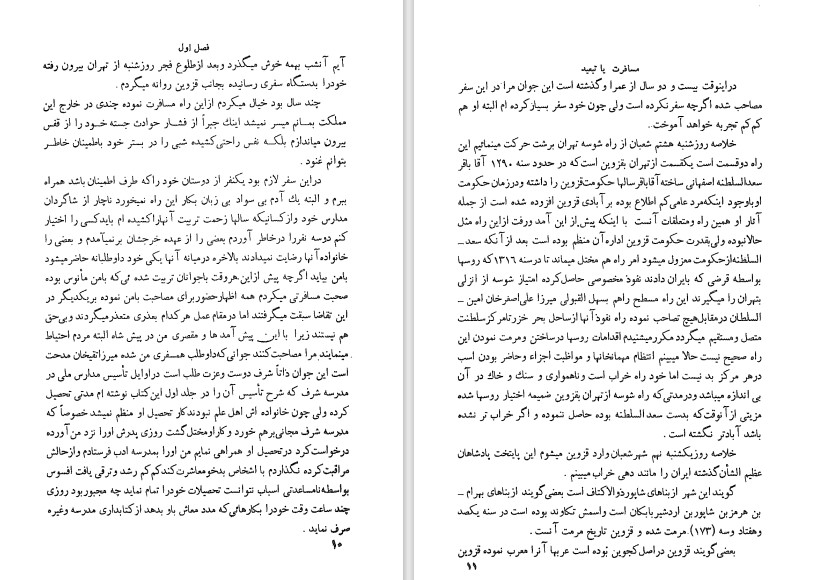 فصل اول
آیم آنشب بهمه خوش میگذرد وبعد ازطلوع فجر روزشنبه از تهران بیرون رفته
خودرا بدستگاه سفری رسانیده بجانب قزوین روانه میگردم .
چند سال بود خیال میکردم ازاین راه مسافرت نموده چندی در خارج این
مملکت بمانم میسر نمیشد اینك جبراً از فشار حوادث جسته خود را از قفس
بیرون میاندازم بلکه نفس راحتی کشیده شبی را در بستر خود باطمینان خاطر
بتوانم غنود .
دراین سفر لازم بود یکنفر از دوستان خود راکه طرف اطمینان باشد همراه
ببرم و البته یك آدم بی سواد بی زبان بکار این راه نمیخورد ناچار از شاگردان
مدارس خود وازکسانیکه سالها زحمت تربیت آنهاراکشیده ام بایدکسی را اختیار
کنم دوسه نفررا درخاطر آوردم بعضی را از عهده خرجشان برنمیآمدم و بعضی را
خانواده آنها رضایت نمیدادند بالاخره درمیانه آنها یکی خود داوطلبانه حاضرمیشود
بامن بیاید اگرچه پیش ازاین هروقت باجوانان تربیت شده می که بامن مأنوس بوده
صحبت مسافرتی میکردم همه اظهارحضوربرای مصاحبت بامن نموده بریکدیگر در
این تقاضا سبقت میگرفتند اما درمقام عمل هرکدام بعذری متعذرمیگردند وبی حق
هم نیستند زیرا با این پیش آمد ها و مقصری من در پیش شاه البته مردم احتیاط
مینمایند مرا مصاحبت کنند جوانی که داوطلب همسفری من شده میرزاتقیخان مدحت
است این جوان ذاتاً شرف دوست وعزت طلب است دراوایل تأسیس مدارس ملی در
مدرسه شرف که شرح تأسیس آن را در جلد اول این کتاب نوشته ام مدتی تحصیل
کرده ولی چون خانواده اش اهل علم نبودندکار تحصیل او منظم نمیشد خصوصاً که
مدرسه شرف مجانی برهم خورد وکار اومختل گشت روزی پدرش اورا نزد من آورده
درخواست کرد درتحصیل او همراهی نمایم من اورا بمدرسه ادب فرستادم وازحالش
مراقبت کرده نگذاردم با اشخاص بدخومعاشرت کند کم کم رشد وترقی یافت افسوس
بواسطه نامساعدتی اسباب نتوانست تحصیلات خودرا تمام نماید چه مجبوربود روزی
چند ساعت وقت خودرا بکارهائی که مدد معاش باو بدهد ازکتابداری مدرسه وغیره
صرف نماید .
۱۰
مسافرت یا تبعید
دراینوقت بیست و دو سال از عمرا وگذشته است این جوان مرا در این سفر
مصاحب شده اگرچه سفرنکرده است ولی چون خود سفر بسیارکرده ام البته او هم
کم کم تجربه خواهد آموخت .
خلاصه روزشنبه هشتم شعبان از راه شوسه تهران برشت حرکت مینمائیم این
راه دوقسمت است یکقسمت ازتهران بقزوین است که در حدود سنه ۱۲۹۰ آقا باقر
سعدالسلطنه اصفهانی ساخته آقاباقرسالها حکومت قزوین را داشته ودرزمان حکومت
اوباوجود اینکه مرد عامی کم اطلاع بوده برآبادی قزوین افزوده شده است از جمله
آثار او همین راه ومتعلقات آنست با اینکه پیش از این آمد ورفت ازاین راه مثل
حالانبوده ولی بقدرت حکومت قزوین اداره آن منظم بوده است بعد از آنکه سعد ـ
السلطنه از حکومت معزول میشود امر راه هم مختل میماند تا درسنه ۱۳۱۶ که روسها
بواسطه قرضی که بایران دادند نفوذ مخصوصی حاصل کرده امتیاز شوسه از انزلی
بتهران را میگیرند این راه مسطح راهم بسهل القبولی میرزا علی اصغرخان امین ـ
السلطان درمقابل هیچ تصاحب نموده راه نفوذ آنها ازساحل بحر خزر تامرکز سلطنت
متصل ومستقیم میگردد مکرر میشنیدم اقدامات روسها درساختن ومرمت نمودن این
راه صحیح نیست حالا میبینم انتظام مهمانخانها و مواظبت اجزاء وحاضر بودن اسب
درهر مرکز بد نیست اما خود راه خراب است وناهمواری و سنك و خاك در آن
بی اندازه میباشد ودرمدتی که راه شوسه ازتهران بقزوین ضمیمه اختیار روسها شده
مزیتی از آنوقت که بدست سعدالسلطنه بوده حاصل ننموده و اگر خراب تر نشده
باشد آبادتر نگشته است .
خلاصه روزیکشنبه نهم شهرشعبان وارد قزوین میشوم این پایتخت پادشاهان
عظیم الشأن گذشته ایران را مانند دهی خراب میبینم .
گویند این شهر از بناهای شاپور ذوالاکتاف است بعضی گویند از بناهای بهرام ـ
بن هرمز بن شاپوربن اردشیربابکان است واسمش تکاوند بوده است در سنه یکصد
وهفتاد وسه (۱۷۳) مرمت شده و قزوین تاریخ مرمت آنست .
بعضی گویند قزوین دراصل کجوین بوده است عربها آنرا معرب نموده قزوین
۱۱